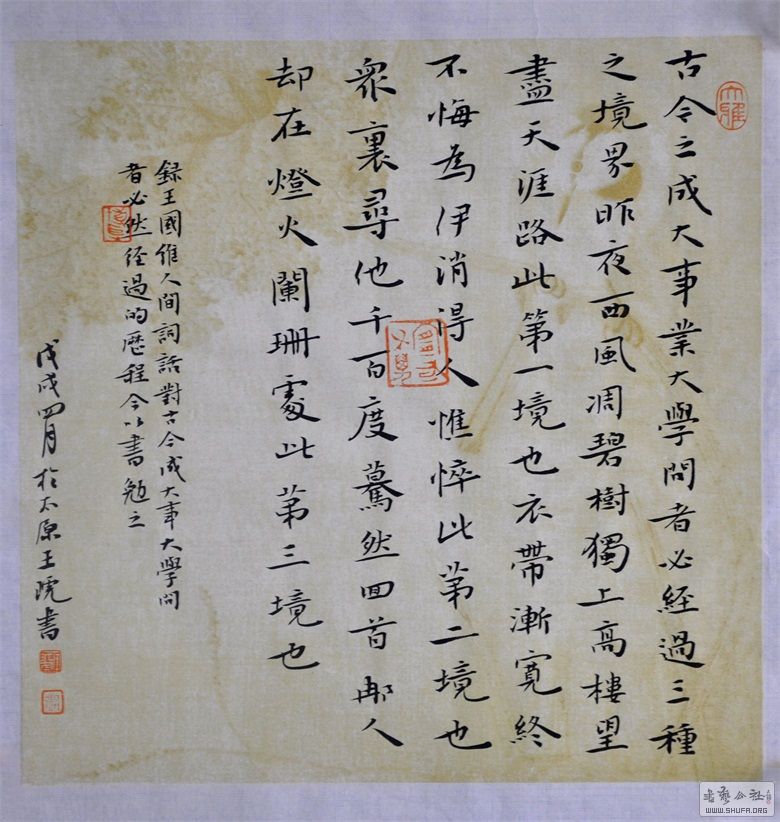 古今之成大事業大學問者必經過三種
之境界昨夜西風凋碧樹獨上高樓望
盡天涯路此第一境也衣帶漸寬終
不悔為伊消得人憔悴此第二境也
眾裏尋他千百度驀然回首那人
却在燈火闌珊處此第三境也
録王國維人間詞話對古今成大事大學問
者必然经過的歷程今以書勉之
戊戌四月於太原王書
大雅
書藝公社
WWW.SHUFA.ORG